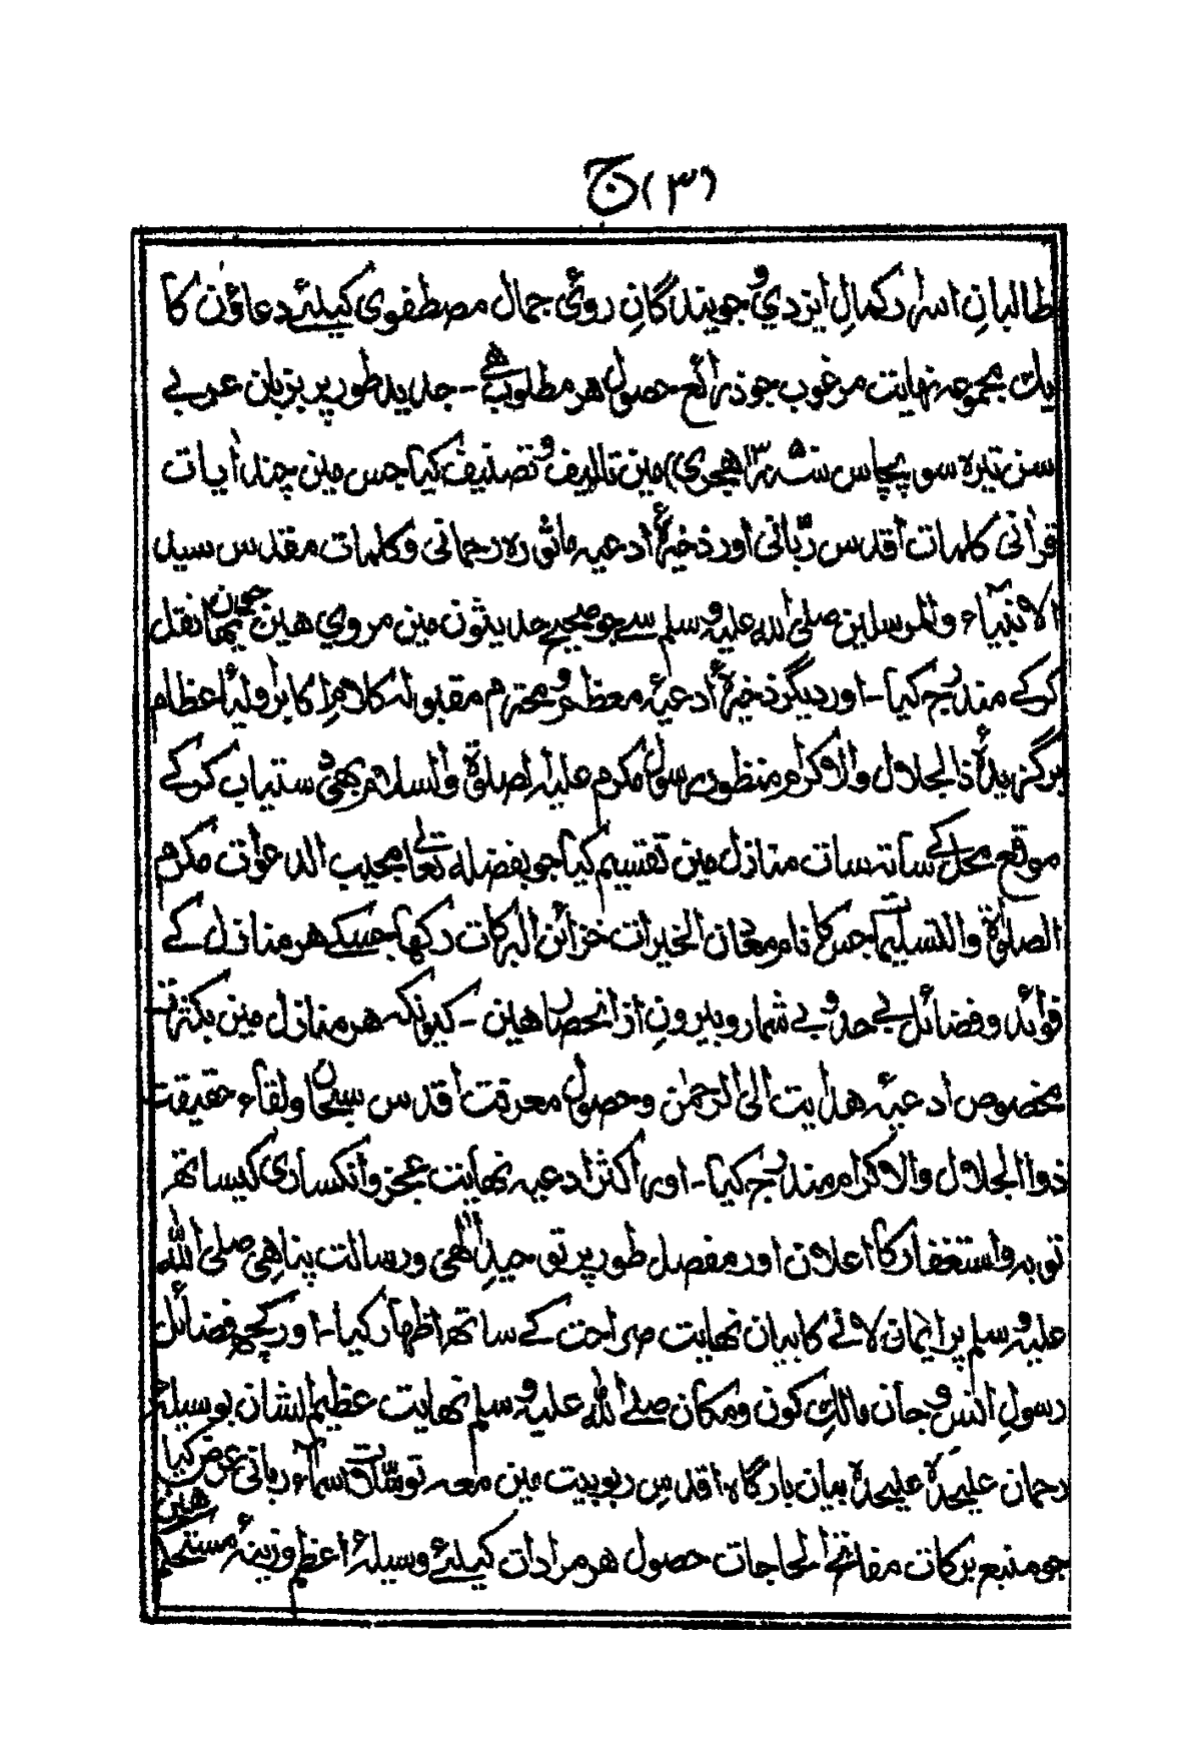 (۳) ج
طالبانِ اسرار کمالِ ایزدي و جویندگانِ روئے جمال مصطفوي کیلئے دعاؤن کا
یك مجموعہ نہایت مرغوب جو ذرائع حصول هر مطلوب هے - جدید طور پر بزبان عربے
سن تیره سو پچاس سنه ۱۳۵۰ هجري) مین تالیف و تصنیف کیا جس مین چند اٰیات
قراٰنی کلمات اقدس ربّانی اور ذخیرۂ ادعیہ ماثوره رحمانی و کلمات مقدس سید
الانبیآء والمرسلین صلی الله علیه وسلم سے جو صحیح حدیثون مین مروي هین جمان تهان نقل
کرکے مندرج کیا - اور دیگر ذخیرۂ ادعیۂ معظم و محترم مقبولہ کلام اکابر اولیٔا عظام
برگزیدۂ ذالجلال والاکرام منظور رسول مکرم علیه الصلوٰة والسلام بهی دستیاب کرکے
موقع محل کے ساتہ سات منازل مین تقسیم کیا جو بفضلہ تعالٰے مجیب الدعوات مکرم
الصلوٰة والتسلیمات جس کا نام معدن الخیرات خزائن البرکات رکها جسکے هر منازل کے
فوائد و فضائل بے حد و بے شمار و بیرون از انحصار هین - کیونکہ هر منازل مین بکثرت
مخصوص ادعیۂ هدایت الی الرحمٰن و حصول معرفت اقدس سبحان و لقاء حقیقت
ذواالجلال والاکرام مندرج کیا - اور اکثر ادعیہ نهایت عجز و انکساري کیساتھ
توبہ و استغفار کا اعلان اور مفصل طور پر توحیدِ الٰهی و رسالت پناهی صلی الله
علیه وسلم پر ایمان لانے کا بیان نهایت صراحت کے ساتھ اظهار کیا - اور کچھ فضائل
رسولِ انس و جان مالكِ کون و مکان صلے الله علیه وسلم نهایت عظیم الشان بوسیلۂ
رحمان علیحدہ علیحدہ بیان بارگاہ اقدس ربوبیت مین معہ توسلات اسماء ربانی عرض کیا هین
جو منبع برکات مفاتح الحاجات حصول هر مرادات کیلئے وسیلۂ اعظم و زینۂ مستحکم